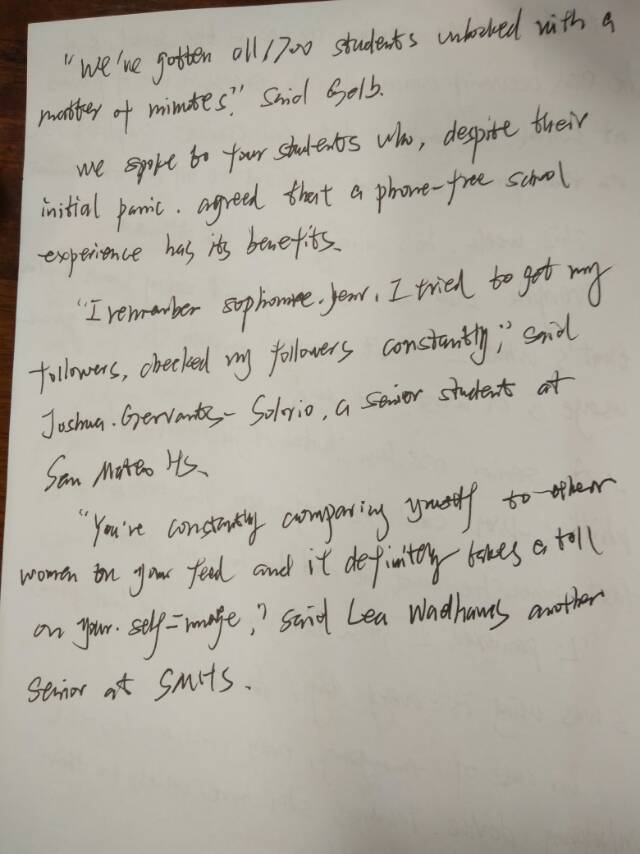 "We've gotten all 1700 students unlocked with a
matter of minutes." said Gelb.
we spoke to four students who, despite their
initial panic. agreed that a phone-free school
experience has its benefits.
"I remember sophomore.year. I tried to get my
followers, checked my followers constantly," said
Joshua. Gervantes-Solorio, a senior student at
San Mateo HS.
"You're constantly comparing yourself to other
women on your feed and it definitely takes a toll
on your. self-image," said Lea Wadhams another
senior at SMHS.